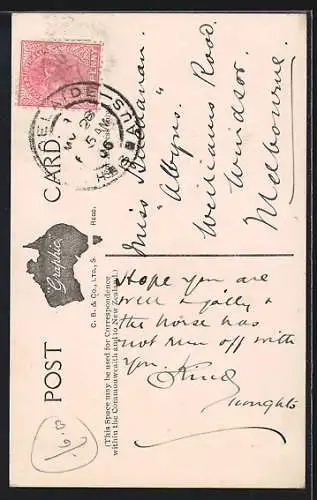 POST CARD
Graphic
C. B. & Co., LTD., S.
REGD.
(This Space may be used for Correspondence
within the Commonwealth and to New Zealand.)
PENNY
ADELAIDE
S.AUS
Hope you are
well & jolly &
the horse has
not run off with
you. Kind
thoughts
Miss Buchanan.
"Abyns.
Williams Road.
Windsor.
Melbourne.